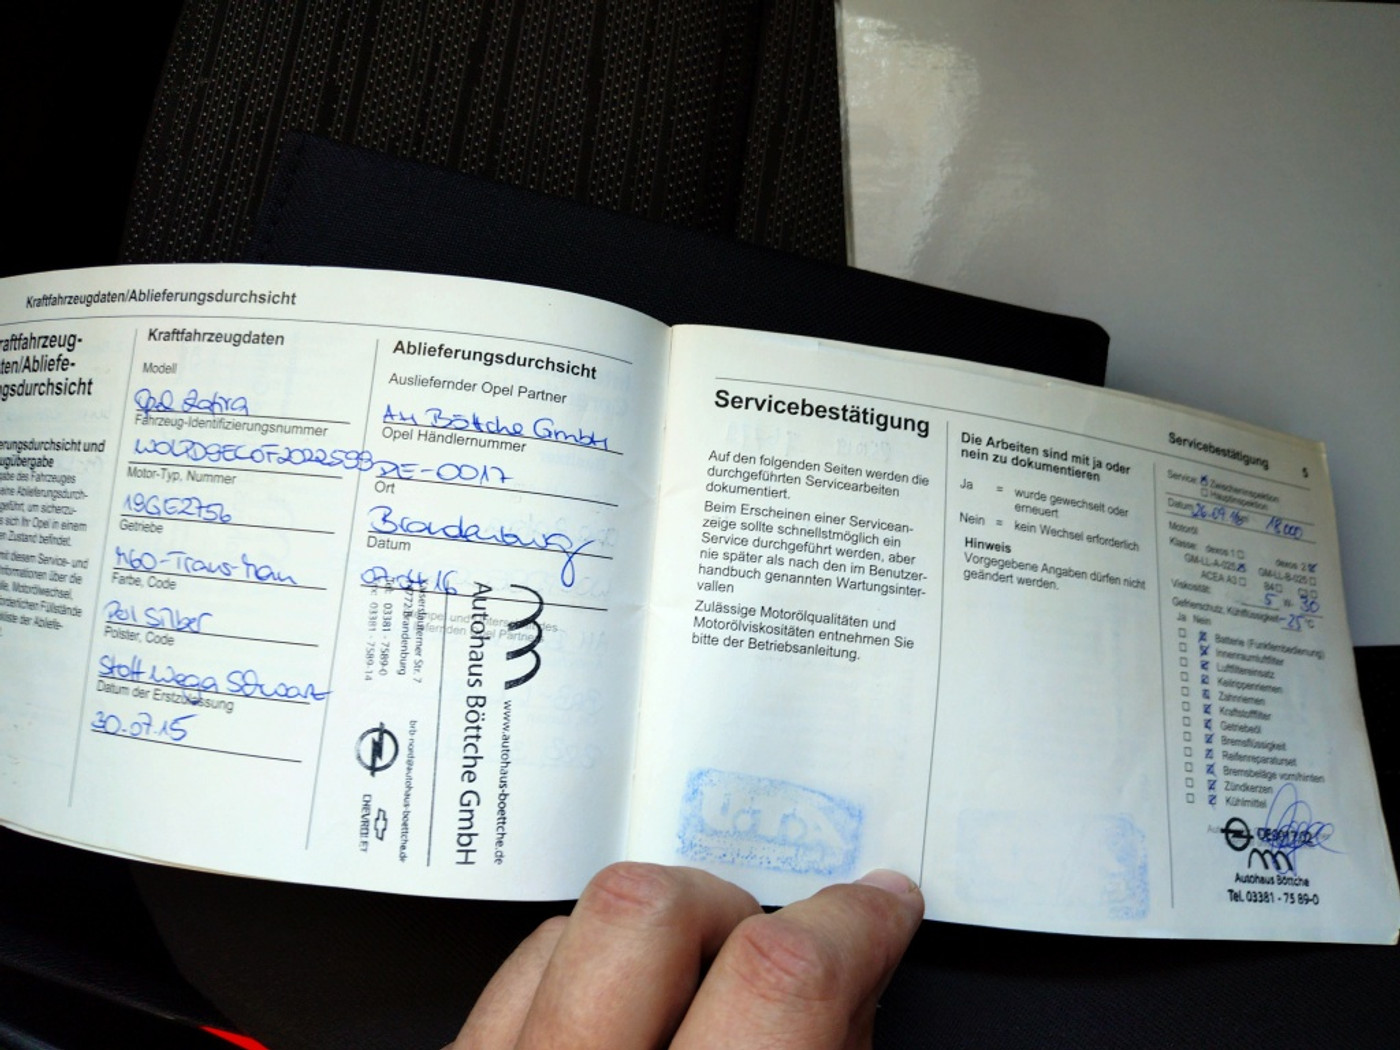 Kraftfahrzeugdaten/Ablieferungsdurchsicht
raftfahrzeug-
ten/Abliefe-
gsdurchsicht
erungsdurchsicht und
ugübergabe
abe des Fahrzeuges
eine Ablieferungsdurch-
geführt, um sicherzu-
s sich Ihr Opel in einem
en Zustand befindet.
mit diesem Service- und
nformationen über die
lle, Motorölwechsel,
orderlichen Füllstände
kliste der Abliefe-
Kraftfahrzeugdaten
Modell
Opel Zafira
Fahrzeug-Identifizierungsnummer
Motor-Typ, Nummer
19GE2756
Getriebe
Farbe, Code
Silber
Polster, Code
Stoff Wega Schwarz
Datum der Erstzulassung
30.07.15
Ablieferungsdurchsicht
Ausliefernder Opel Partner
AH Böttche GmbH
Opel Händlernummer
DE-0017
Ort
Brandenburg
Datum
Autohaus Böttche GmbH
www.autohaus-boettche.de
brb-nord@autohaus-boettche.de
CHEVROLET
Servicebestätigung
Auf den folgenden Seiten werden die
durchgeführten Servicearbeiten
dokumentiert.
Beim Erscheinen einer Servicean-
zeige sollte schnellstmöglich ein
Service durchgeführt werden, aber
nie später als nach den im Benutzer-
handbuch genannten Wartungsinter-
vallen
Zulässige Motorölqualitäten und
Motorölviskositäten entnehmen Sie
bitte der Betriebsanleitung.
Die Arbeiten sind mit ja oder
nein zu dokumentieren
Ja = wurde gewechselt oder
erneuert
Nein = kein Wechsel erforderlich
Hinweis
Vorgegebene Angaben dürfen nicht
geändert werden.
Servicebestätigung 5
Service: Zwischeninspektion
Hauptinspektion
Datum 18.000
Motoröl
Klasse: dexos 1 dexos 2
GM-LL-A-025 GM-LL-B-025
ACEA A3
Viskosität: 5 W- 30
Gefrierschutz, Kühlflüssigkeit -25 °C
Ja Nein
Batterie (Funkfernbedienung)
Innenraumluftfilter
Luftfiltereinsatz
Keilrippenriemen
Zahnriemen
Kraftstofffilter
Getriebeöl
Bremsflüssigkeit
Reifenreparaturset
Bremsbeläge vorn/hinten
Zündkerzen
Kühlmittel
Autohaus Böttche
Tel. 03381 - 75 89-0